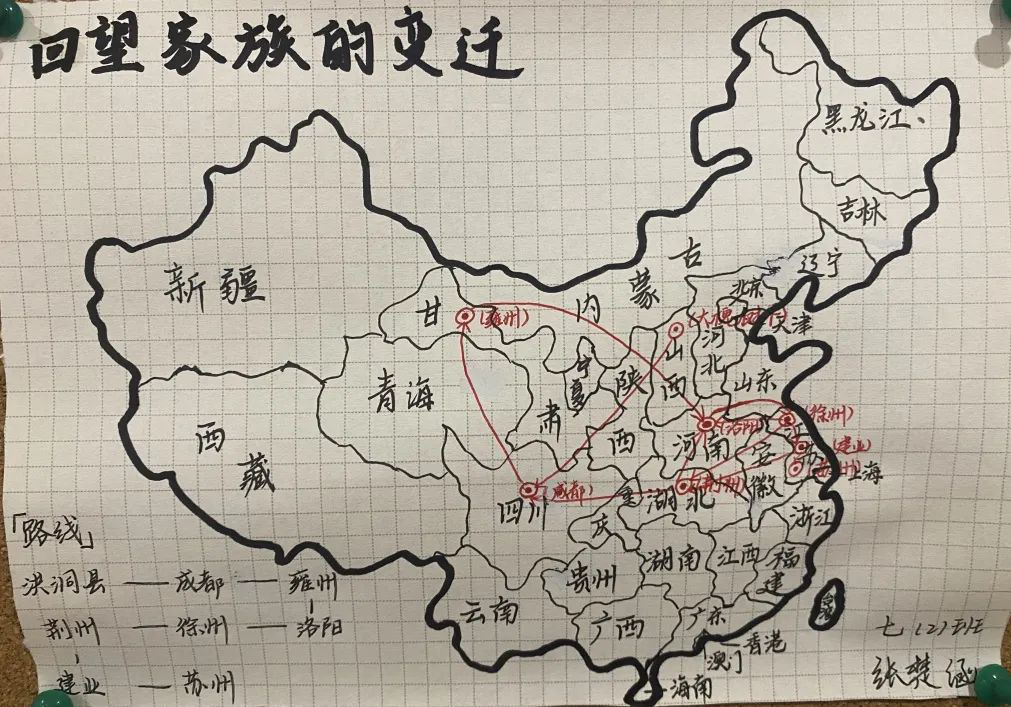 回望家族的变迁
黑龙江、
吉林
辽宁
新疆
甘
肃
内
蒙
古
北京
天津
(雍州)
山
西
河
北
宁
夏
陕
西
山东
青海
西
藏
(徐州)
(洛阳)
河南
安
徽
(建业)
苏
上海
四川
(成都)
重
庆
湖北
浙江
湖南
江西
福
建
贵州
云南
广西
广东
香港
澳门
海南
台湾
「路线」
洪洞县 — 成都 — 雍州
荆州 — 徐州 — 洛阳
建业 — 苏州
七(2)班
张楚涵